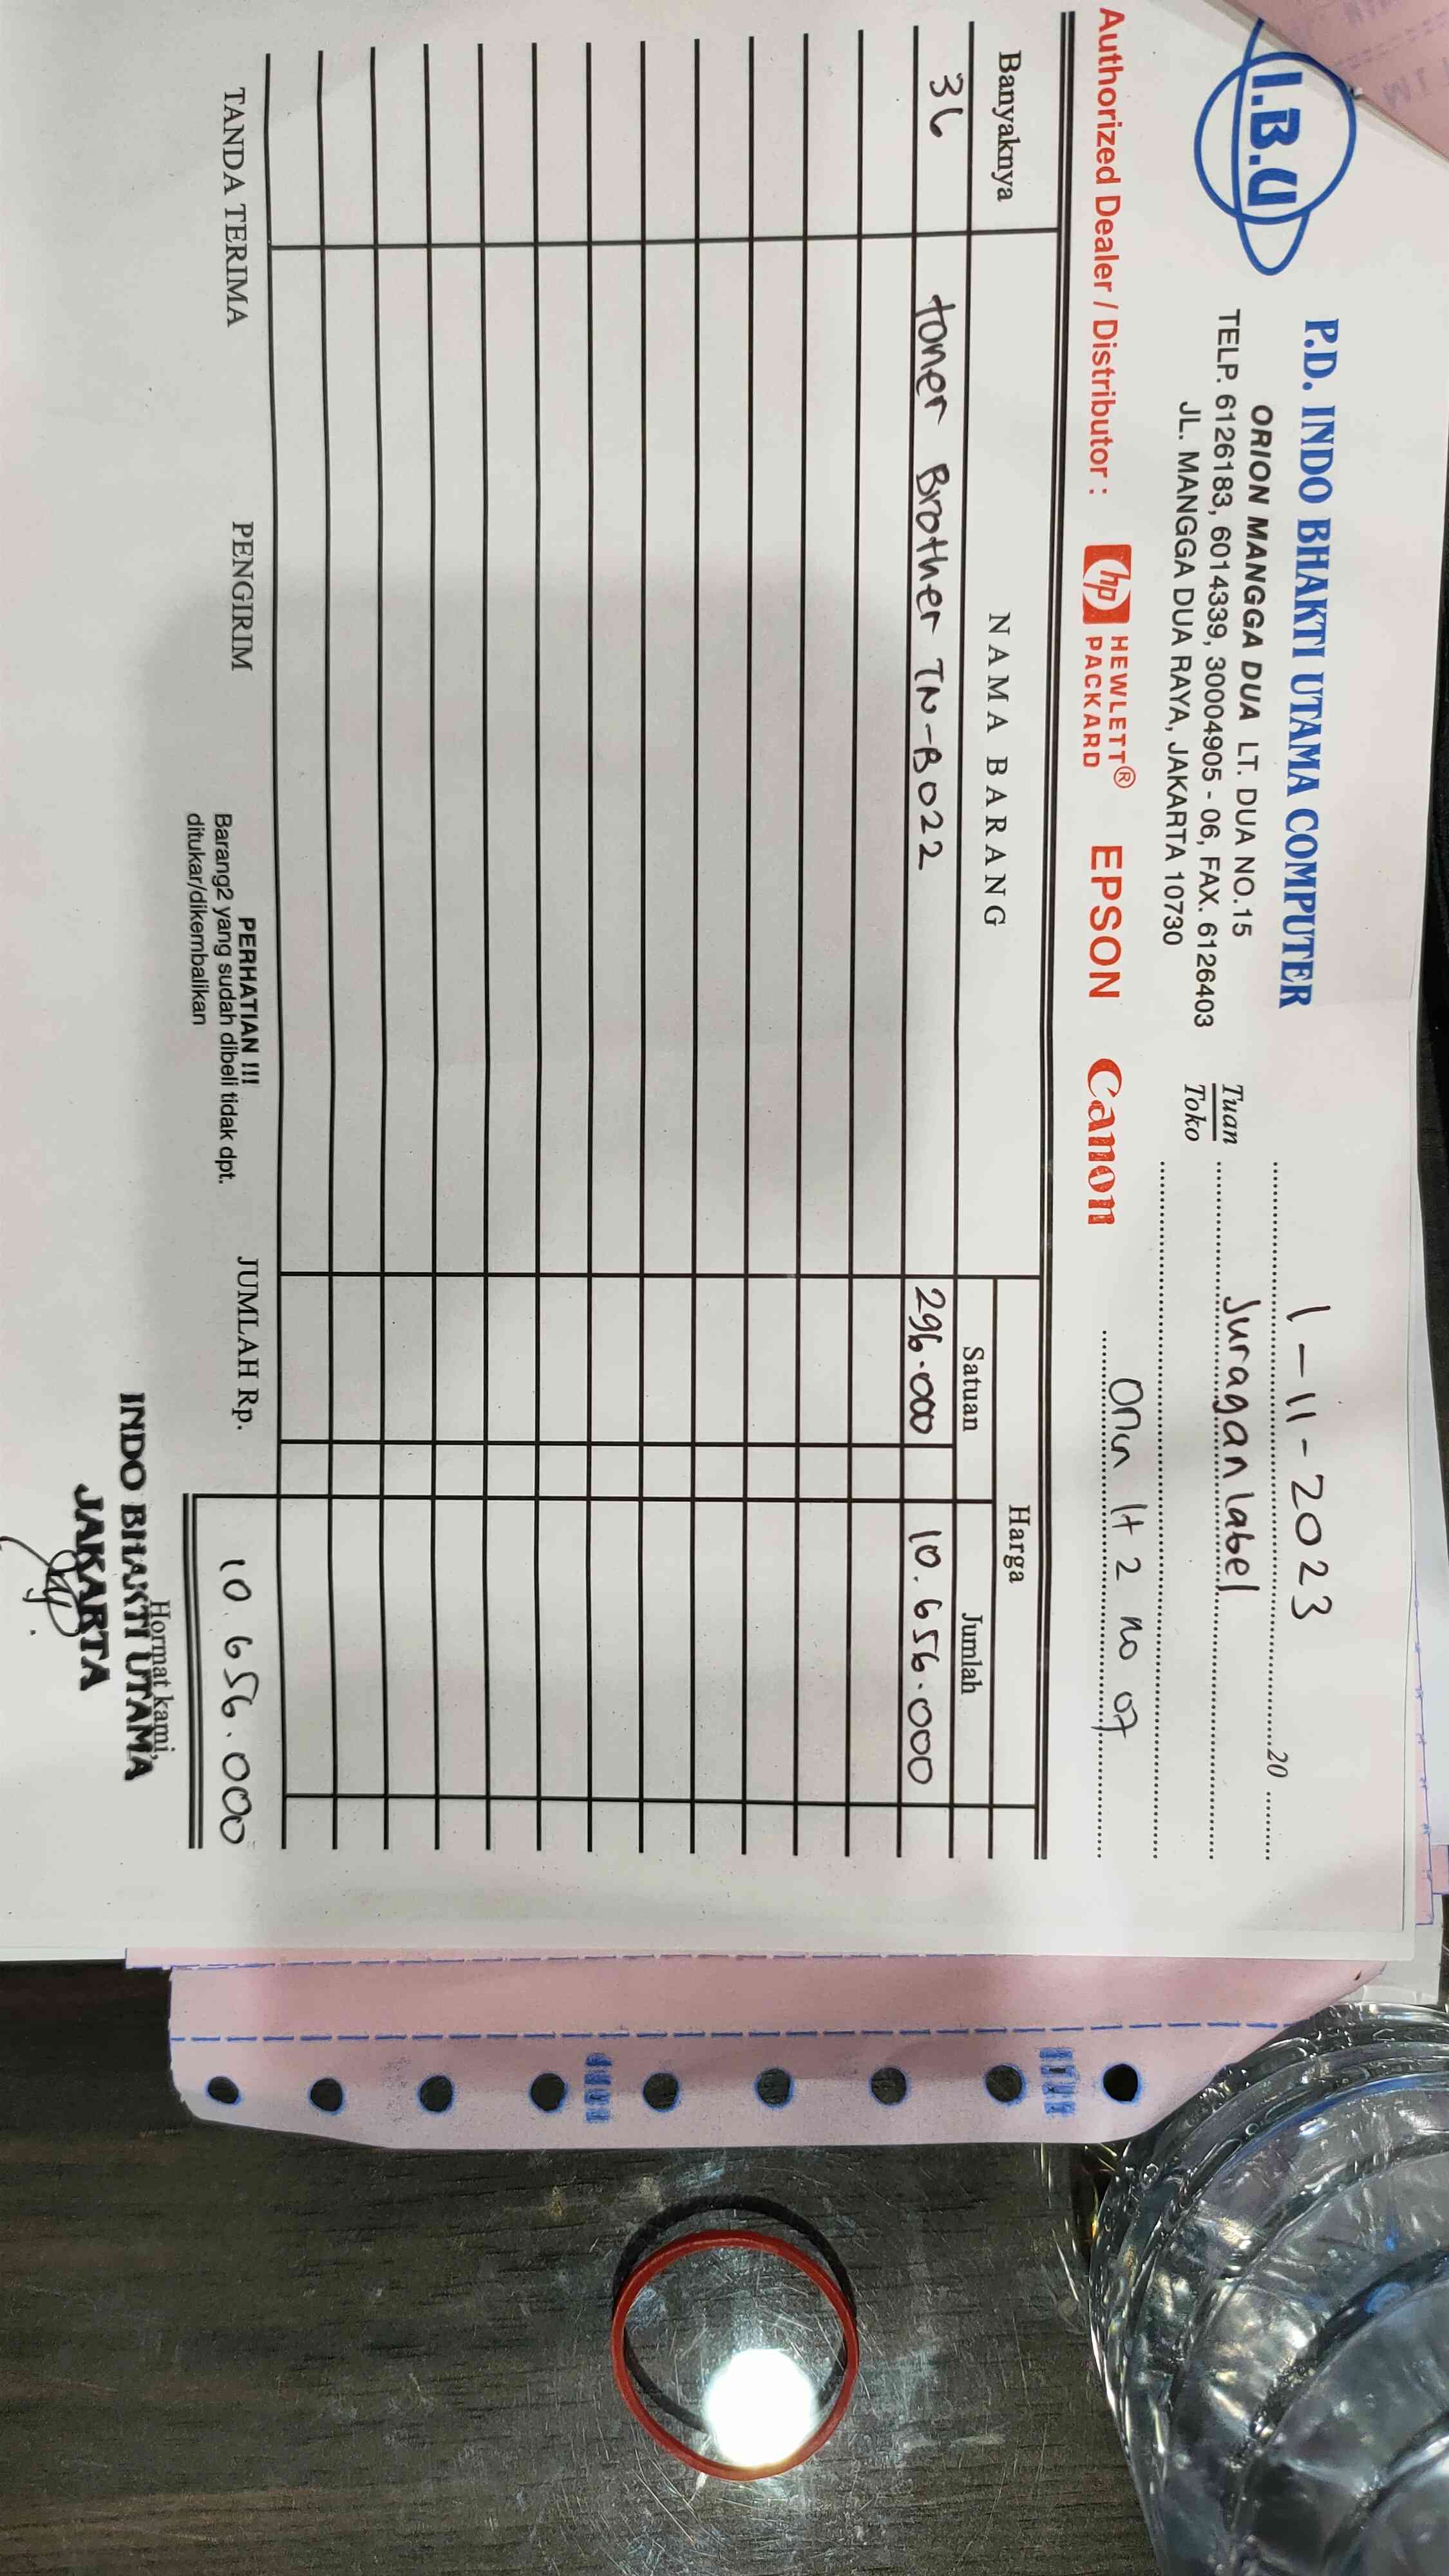 I.B.U
P.D. INDO BHAKTI UTAMA COMPUTER
ORION MANGGA DUA LT. DUA NO.15
TELP. 6126183, 6014339, 30004905 - 06, FAX. 6126403
JL. MANGGA DUA RAYA, JAKARTA 10730
1-11-2023
20
Tuan
Toko
Juragan label
Authorized Dealer / Distributor : hp HEWLETT® PACKARD EPSON Canon
Orin lt 2 no 07
Banyaknya NAMA BARANG Harga
Satuan Jumlah
36 toner Brother TN-B022 296.000 10.656.000
TANDA TERIMA PENGIRIM JUMLAH Rp. 10.656.000
PERHATIAN !!!
Barang2 yang sudah dibeli tidak dpt.
ditukar/dikembalikan
Hormat kami,
INDO BHAKTI UTAMA
JAKARTA